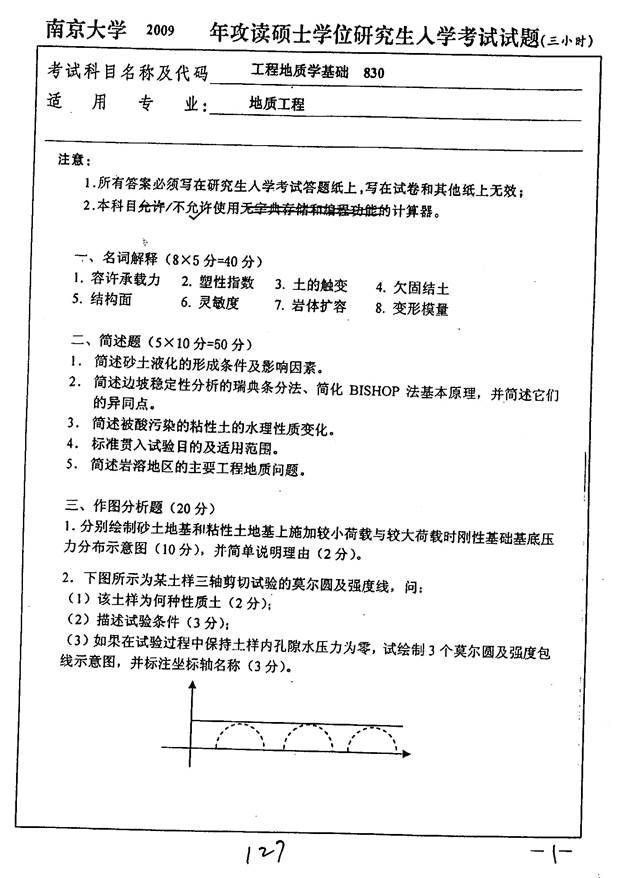 南京大学 2009 年攻读硕士学位研究生入学考试试题(三小时)
考试科目名称及代码 工程地质学基础 830
适用专业: 地质工程
注意:
1.所有答案必须写在研究生入学考试答题纸上,写在试卷和其他纸上无效;
2.本科目允许/不允许使用无字典存储和编程功能的计算器。
一、名词解释（8×5 分=40 分）
1. 容许承载力 2. 塑性指数 3. 土的触变 4. 欠固结土
5. 结构面 6. 灵敏度 7. 岩体扩容 8. 变形模量
二、简述题（5×10 分=50 分）
1. 简述砂土液化的形成条件及影响因素。
2. 简述边坡稳定性分析的瑞典条分法、简化 BISHOP 法基本原理，并简述它们
的异同点。
3. 简述被酸污染的粘性土的水理性质变化。
4. 标准贯入试验目的及适用范围。
5. 简述岩溶地区的主要工程地质问题。
三、作图分析题（20 分）
1. 分别绘制砂土地基和粘性土地基上施加较小荷载与较大荷载时刚性基础基底压
力分布示意图（10 分），并简单说明理由（2 分）。
2. 下图所示为某土样三轴剪切试验的莫尔圆及强度线，问:
（1）该土样为何种性质土（2 分）;
（2）描述试验条件（3 分）;
（3）如果在试验过程中保持土样内孔隙水压力为零，试绘制 3 个莫尔圆及强度包
线示意图，并标注坐标轴名称（3 分）。
127
-1-